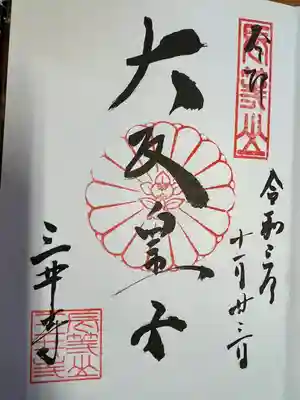 奉拝
令和三年
十一月廿三日
大友皇子
三井寺